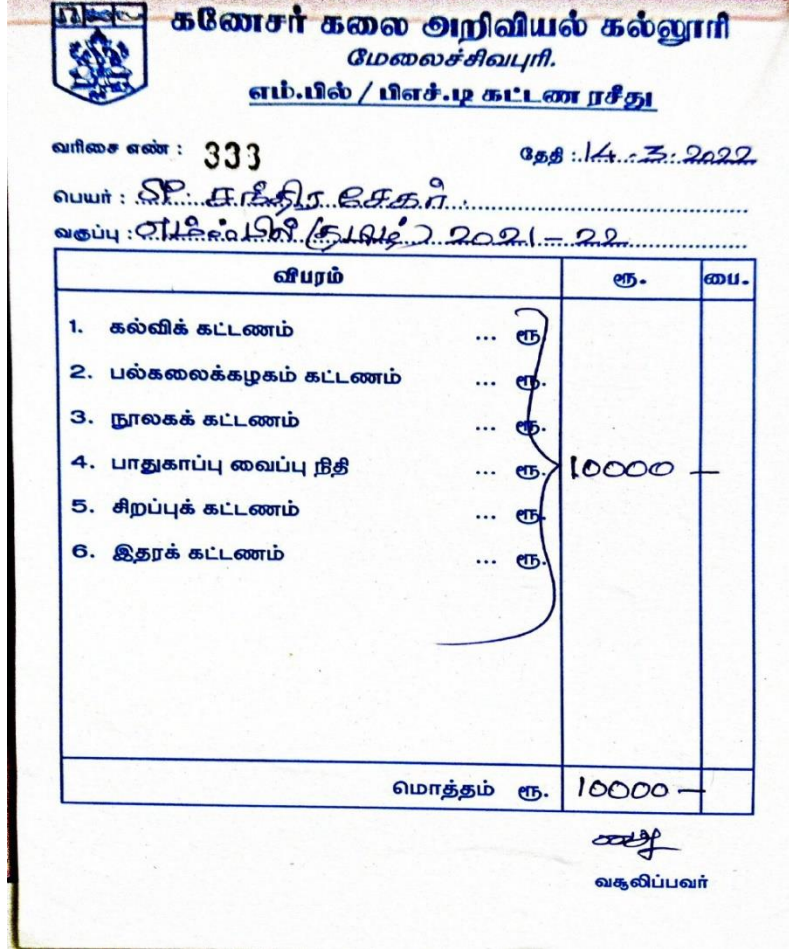 கணேசர் கலை அறிவியல் கல்லூரி
மேலைச்சிவபுரி.
எம்.பில் / பிஎச்.டி கட்டண ரசீது
வரிசை எண் : 333
தேதி : 14-3-2022
பெயர் : SP. சந்திர சேகர்
வகுப்பு : எம்.பில் 2021-22
விபரம் ரூ. பை.
1. கல்விக் கட்டணம் ... ரூ.
2. பல்கலைக்கழகம் கட்டணம் ... ரூ.
3. நூலகக் கட்டணம் ... ரூ.
4. பாதுகாப்பு வைப்பு நிதி ... ரூ. 10000 —
5. சிறப்புக் கட்டணம் ... ரூ.
6. இதரக் கட்டணம் ... ரூ.
மொத்தம் ரூ. 10000 —
வசூலிப்பவர்